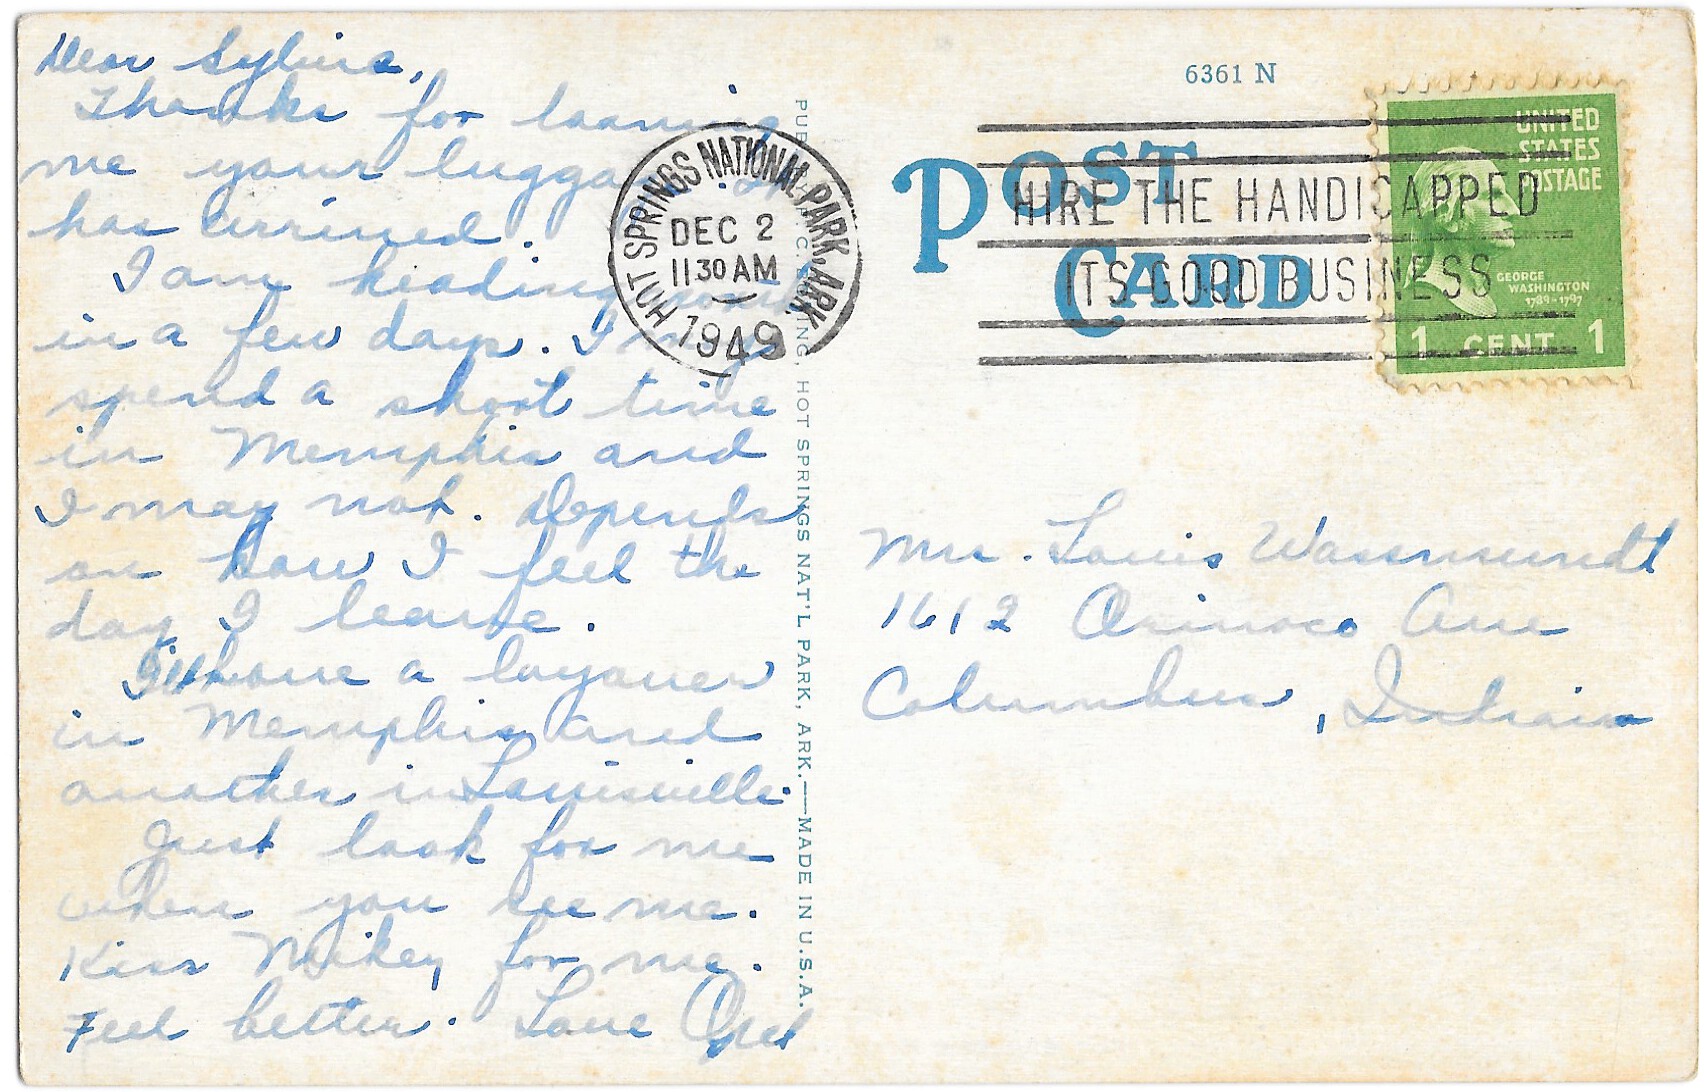 Dear Sylvia,
Thanks for loaning
me your luggage. It
has arrived.
I am heading north
in a few days. I may
spend a short time
in Memphis and
I may not. Depends
on how I feel the
day I leave.
I'll have a layover
in Memphis and
another in Louisville.
Just look for me
when you see me.
Kiss Mikey for me.
Feel better. Love Opel
HOT SPRINGS NATIONAL PARK, ARK
DEC 2
11 30 AM
1949
HOT SPRINGS NAT'L PARK, ARK.—MADE IN U.S.A.
6361 N
POST
CARD
HIRE THE HANDICAPPED
ITS GOOD BUSINESS
UNITED
STATES
POSTAGE
GEORGE
WASHINGTON
1789-1797
1 CENT 1
Mrs. Louis Wassmundt
1612 Orinoco Ave
Columbus, Indiana